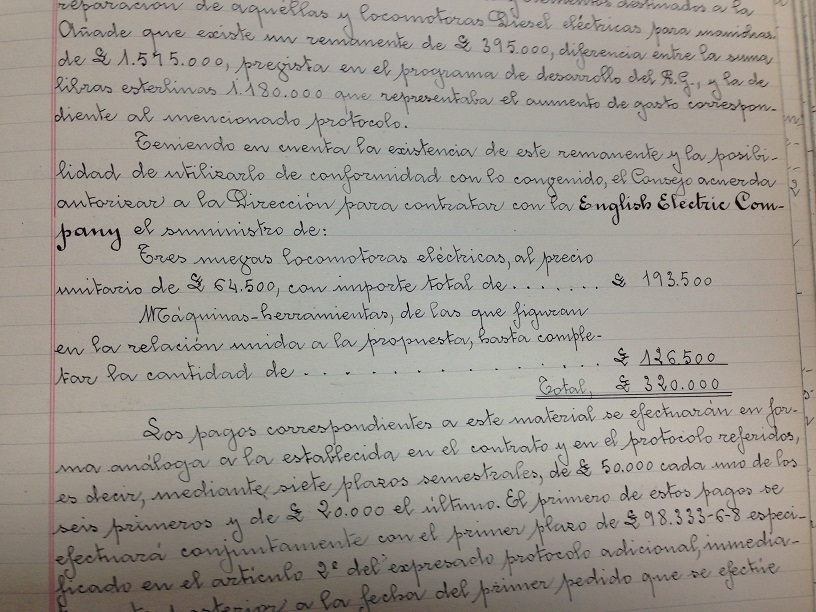 reparación de aquéllas y locomotoras Diesel eléctricas para maniobras.
Añade que existe un remanente de £ 395.000, diferencia entre la suma
de £ 1.575.000, prevista en el programa de desarrollo del R.G., y la de
libras esterlinas 1.180.000 que representaba el aumento de gasto correspon-
diente al mencionado protócolo.
Teniendo en cuenta la existencia de este remanente y la posibi-
lidad de utilizarlo de conformidad con lo convenido, el Consejo acuerda
autorizar a la Dirección para contratar con la English Electric Com-
pany el suministro de:
Tres nuevas locomotoras eléctricas, al precio
unitario de £ 64.500, con importe total de . . . . . . . £ 193.500
Máquinas-herramientas, de las que figuran
en la relación unida a la propuesta, hasta comple-
tar la cantidad de . . . . . . . . . . . . . . . £ 126.500
Total, £ 320.000
Los pagos correspondientes a este material se efectuarán en for-
ma análoga a la establecida en el contrato y en el protócolo referidos,
es decir, mediante siete plazos semestrales, de £ 50.000 cada uno de los
seis primeros y de £ 20.000 el último. El primero de estos pagos se
efectuará conjuntamente con el primer plazo de £ 98.333-6-8 especi-
ficado en el artículo 2º del expresado protócolo adicional, inmedia-
a la fecha del primer pedido que se efectúe